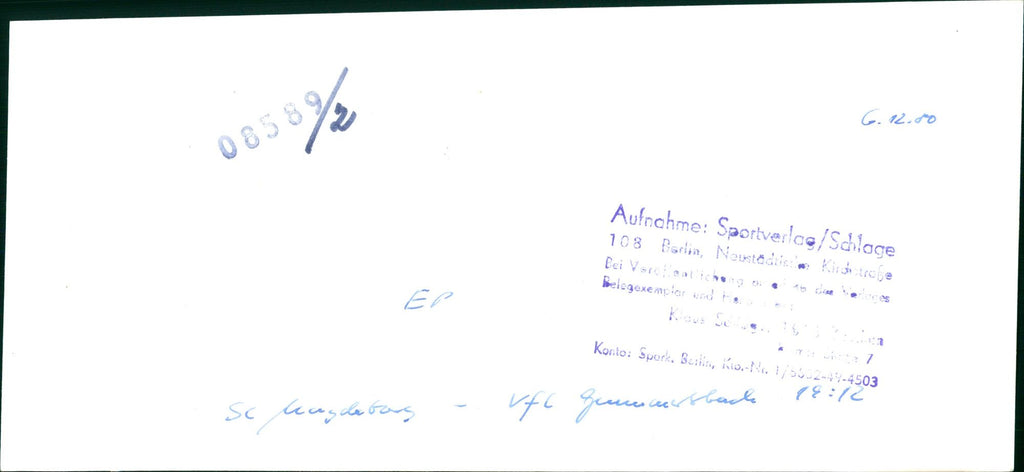 08589/2
6.12.80
Aufnahme: Sportverlag/Schlage
108 Berlin, Neustädtische Kirchstraße
Bei Veröffentlichung des Verlages
Belegexemplar und
Klaus
7
Konto: Spark. Berlin, Kto.-Nr. 1/6652-49-4503
EP
SC Magdeburg - VfL Gummersbach 19:12